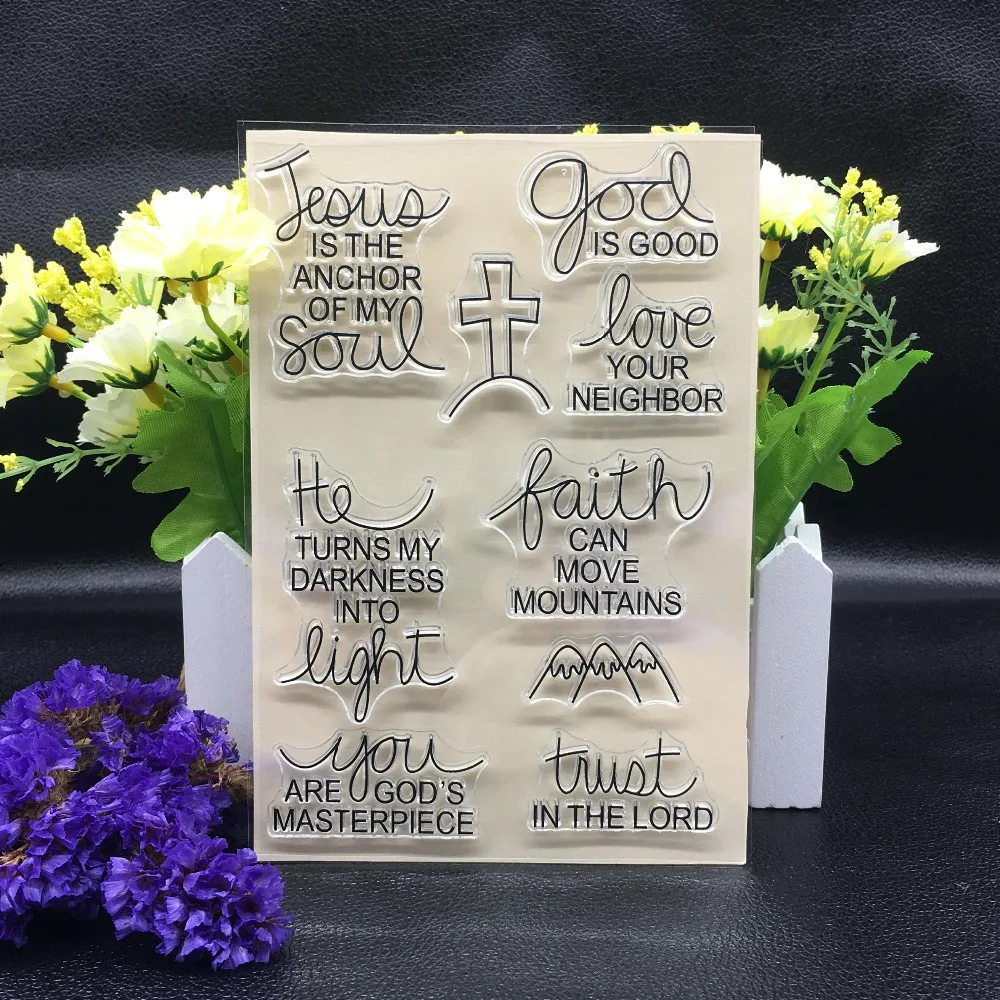 Jesus
IS THE
ANCHOR
OF MY
Soul
God
IS GOOD
love
YOUR
NEIGHBOR
He
TURNS MY
DARKNESS
INTO
light
faith
CAN
MOVE
MOUNTAINS
you
ARE GOD'S
MASTERPIECE
trust
IN THE LORD